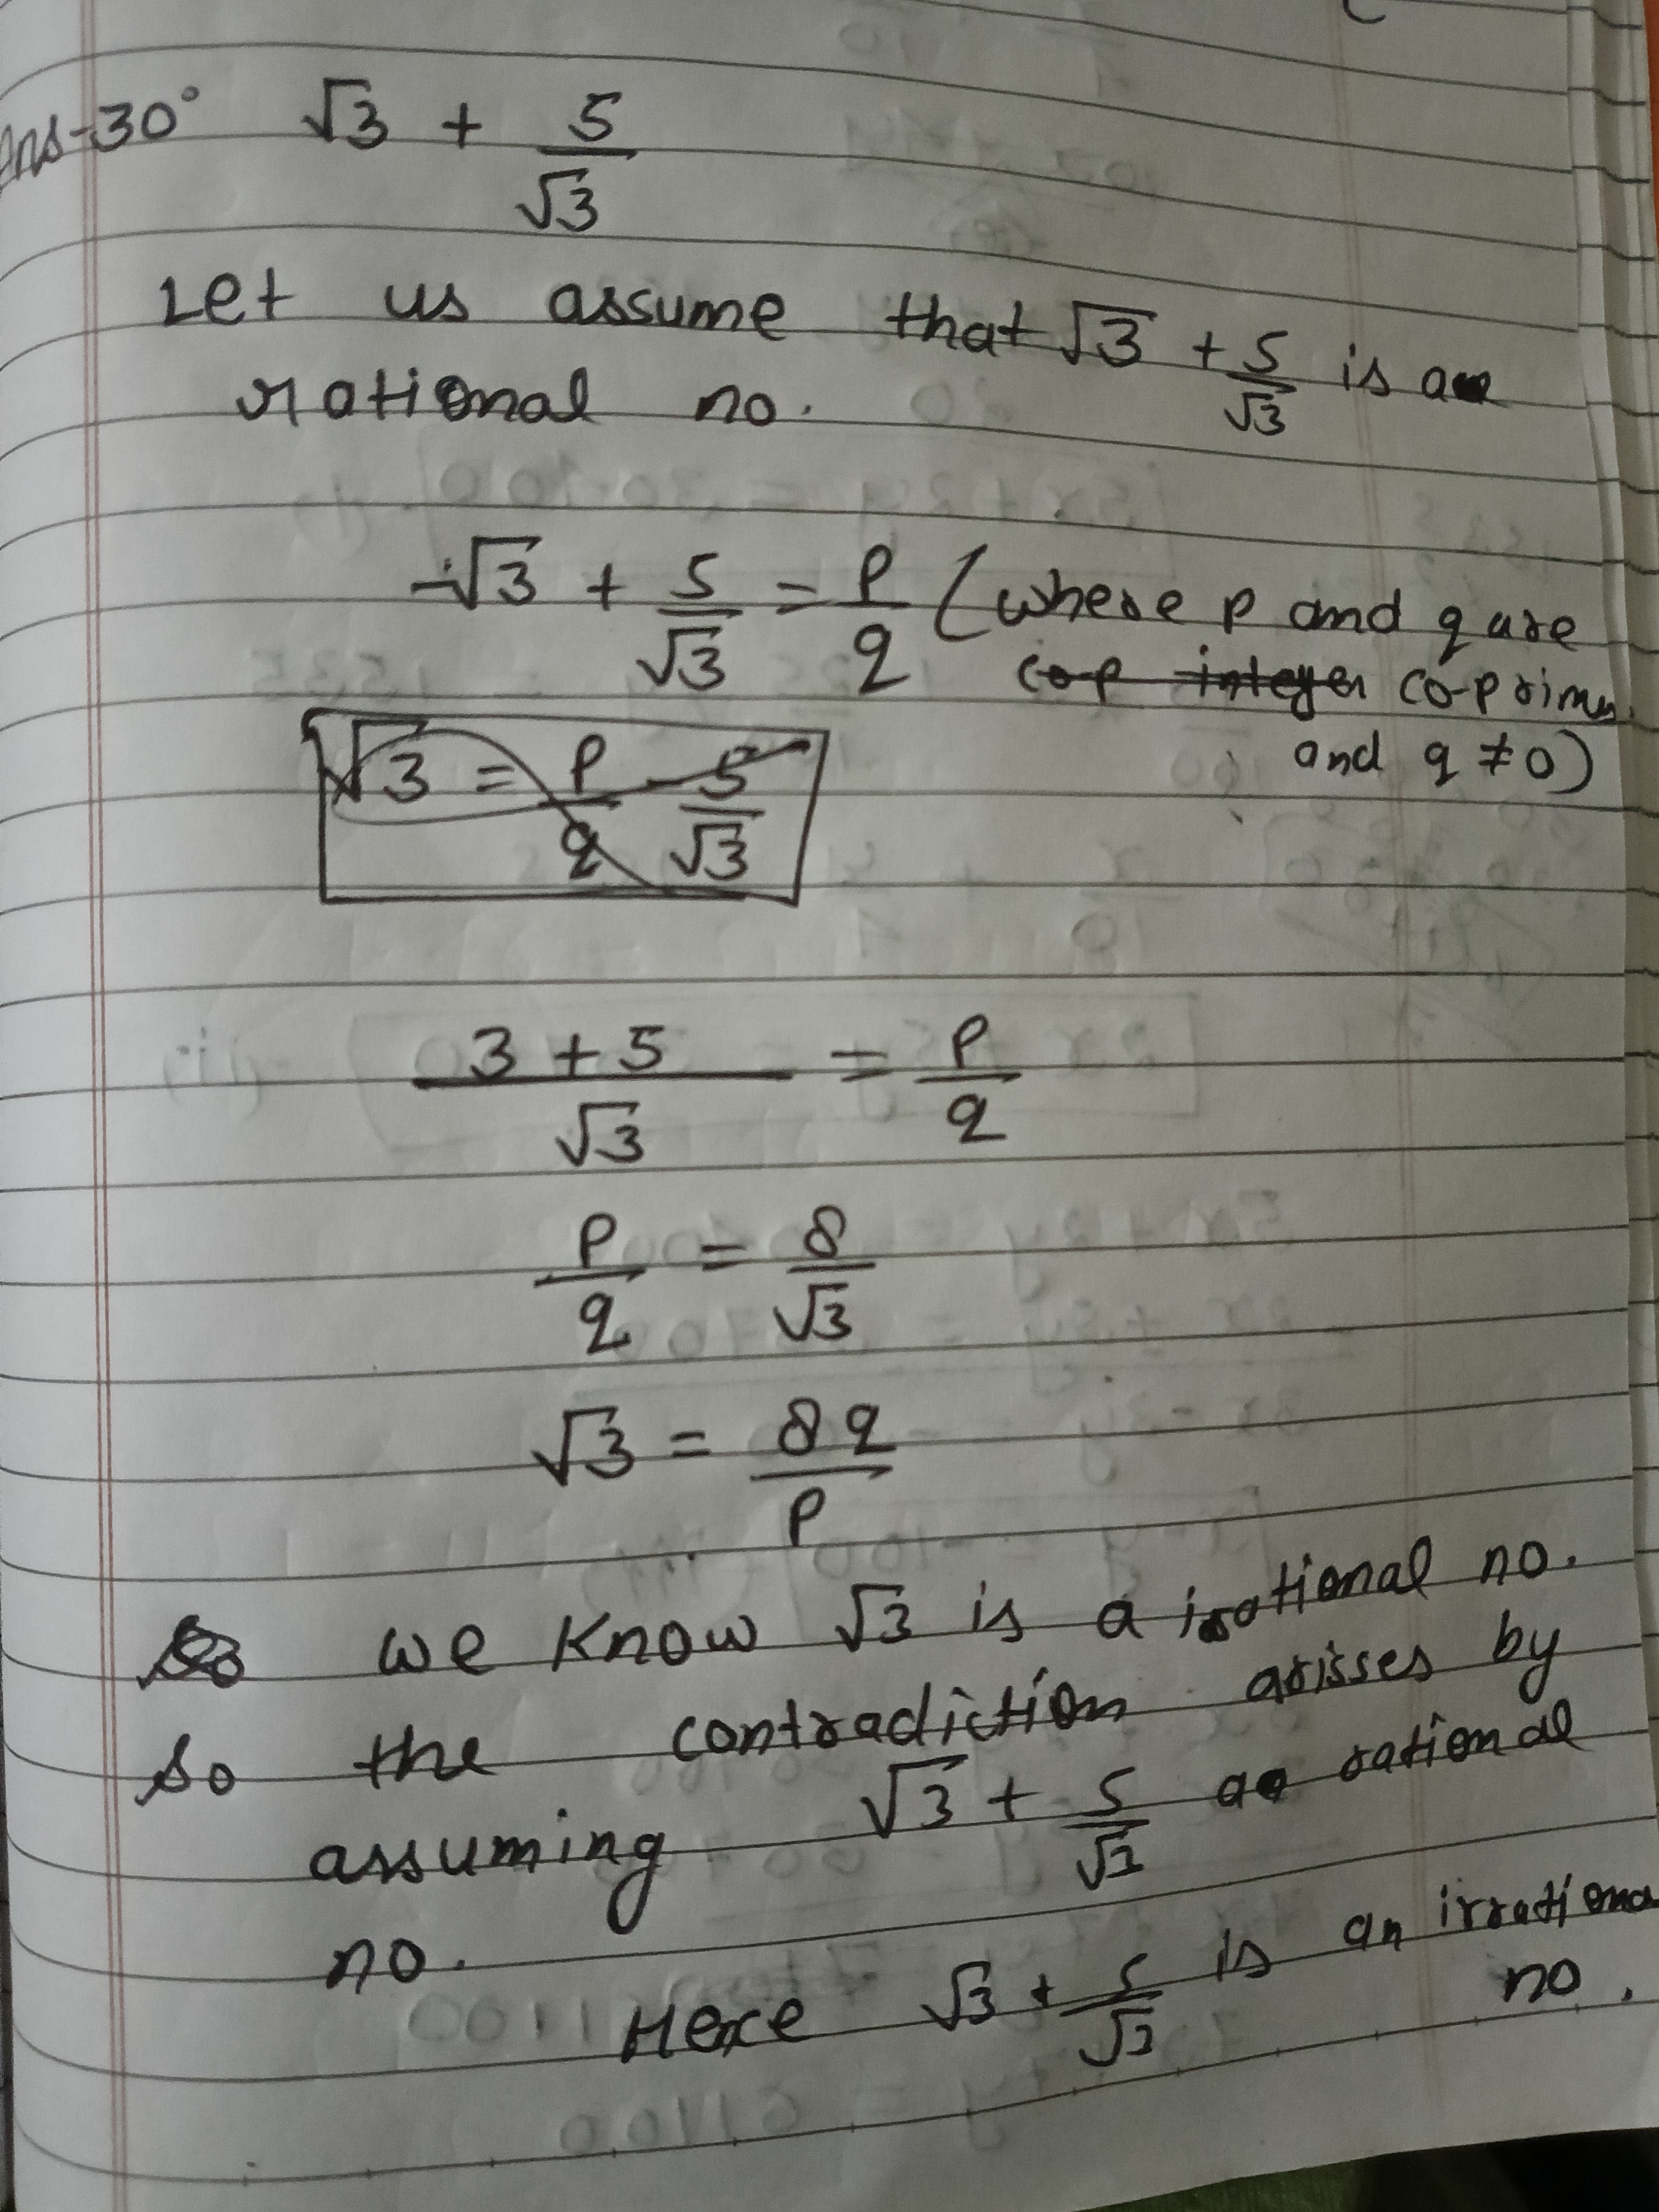 Ans-30° √3 + 5/√3
Let us assume that √3 + 5/√3 is a
rational no.
√3 + 5/√3 = p/q (where p and q are
cop integer co-primes
and q ≠ 0)
√3 = p/q - 5/√3
3 + 5/√3 = p/q
p/q = 8/√3
√3 = 8q/p
we know √3 is a irational no.
so the contradiction arisses by
assuming √3 + 5/√3 as rational
no.
Hexe √3 + 5/√3 is an irrational
no.